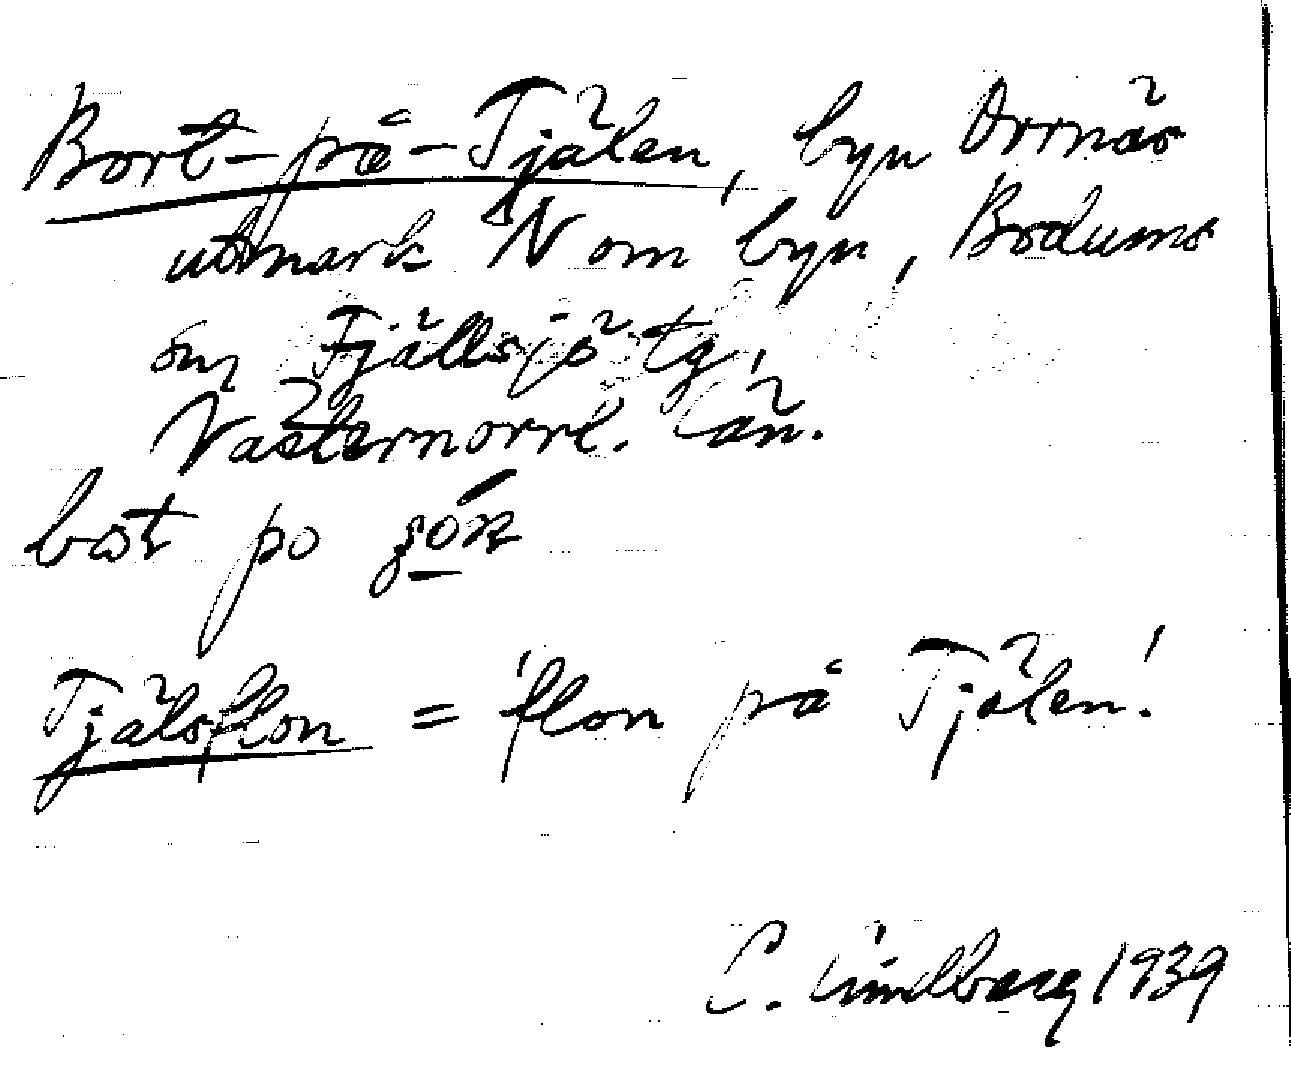 Bort-på-Tjälen, byn Orrnäs
utmark N om byn, Bodums
sn, Fjällsjö tg,
Västernorrl. län.
bot po
Tjälsflon = flon på Tjälen!
C. Lindberg 1939